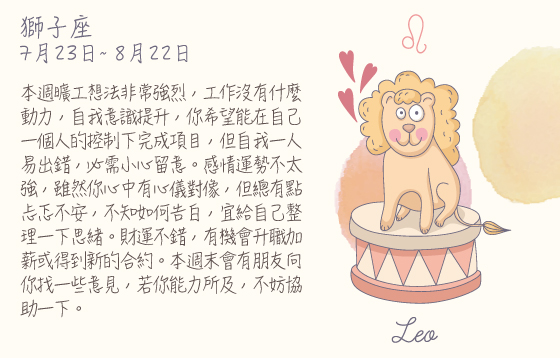 獅子座
7月23日~8月22日
本週曠工想法非常強烈，工作沒有什麼
動力，自我意識提升，你希望能在自己
一個人的控制下完成項目，但自我一人
易出錯，必需小心留意。感情運勢不太
強，雖然你心中有心儀對像，但總有點
忐忑不安，不知如何告白，宜給自己整
理一下思緒。財運不錯，有機會升職加
薪或得到新的合約。本週末會有朋友向
你找一些意見，若你能力所及，不妨協
助一下。
Leo